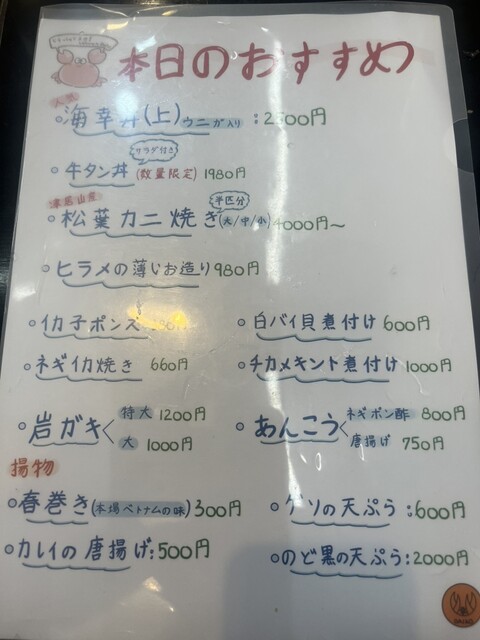 本日のおすすめ
人気
海幸丼(上)ウニが入り : 2500円
サラダ付き
牛タン丼(数量限定) 1980円
津居山産
松葉カニ焼き 半匹分 (大/中/小) 4000円〜
ヒラメの薄いお造り 980円
イカ子ポンズ
白バイ貝煮付け 600円
ネギイカ焼き 660円
チカメキント煮付け 1000円
岩ガキ 特大 1200円
大 1000円
あんこう ネギポン酢 800円
唐揚げ 750円
揚物
春巻き(本場ベトナムの味) 300円
ゲソの天ぷら : 600円
カレイの唐揚げ : 500円
のど黒の天ぷら : 2000円